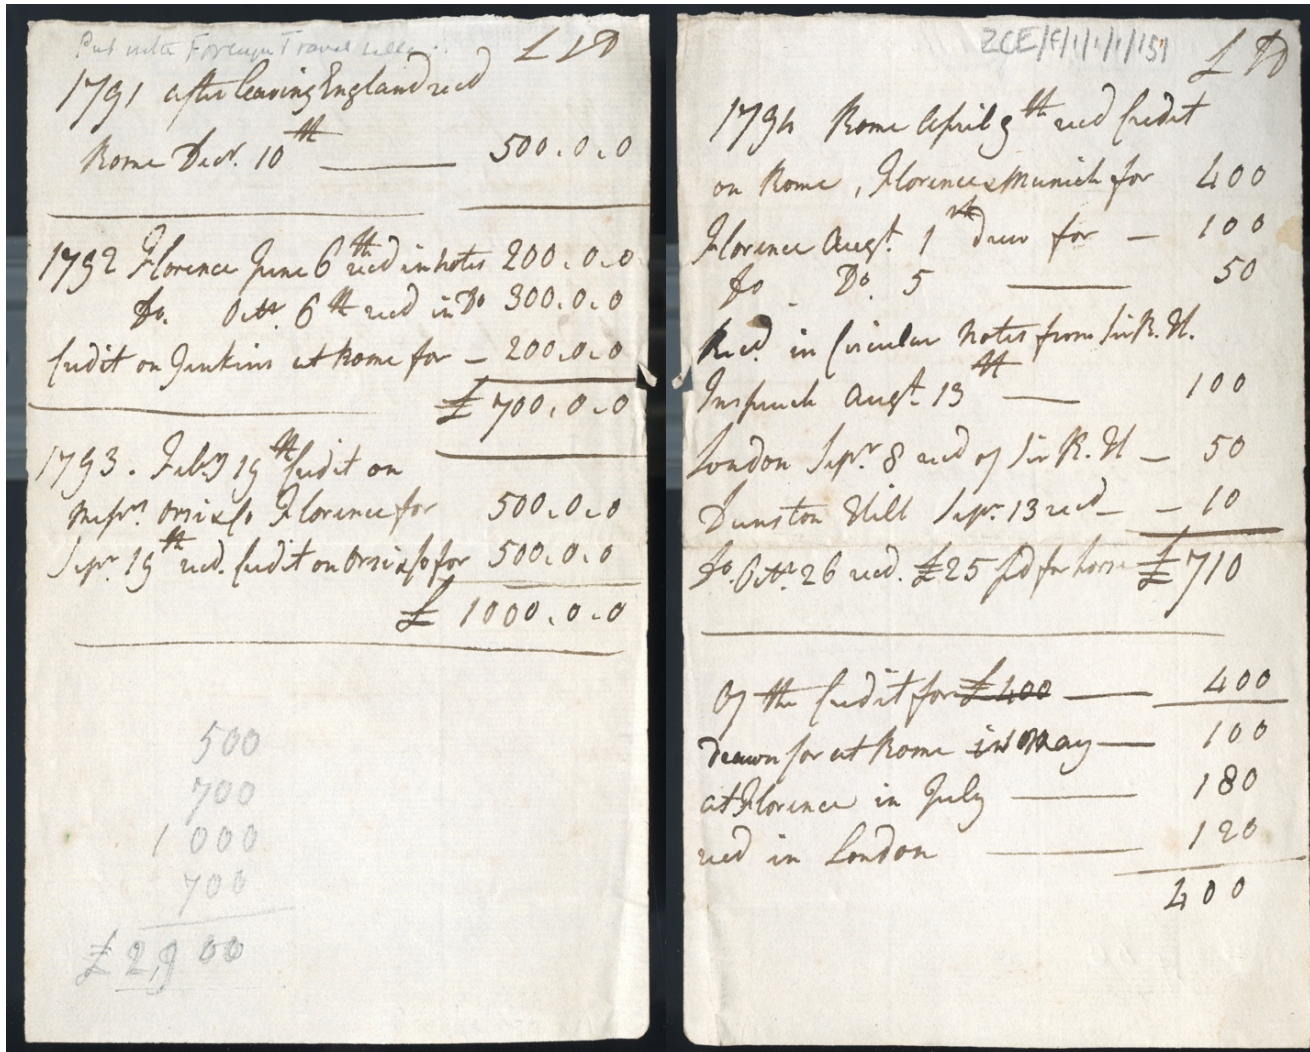 Put with Foreign Travel bills
£ S D
1791 after leaving England recd
Rome Decr. 10th — 500.0.0
1792 Florence June 6th recd in notes 200.0.0
Do. Octr. 6th recd in Do 300.0.0
Credit on Jenkins at Rome for — 200.0.0
£ 700.0.0
1793. Feby 19th Credit on
Messrs. Orsi & Co Florence for 500.0.0
Sepr. 19th recd. Credit on Orsi & Co for 500.0.0
£ 1000.0.0
500
700
1000
700
£ 2,900
ZCE/F/1/1/1/151
£
1794 Rome April 9th recd Credit
on Rome, Florence & Munich for 400
Florence Augt. 1 drew for — 100
Do Do. 5 — 50
Recd. in Circular Notes from Sir R. H.
Inspruck Augt. 13th — 100
London Sepr. 8 recd of Sir R. H — 50
Dunston Hill Sepr. 13 recd — 10
Do. Octr. 26 recd. £25 pd for horse £710
Of the Credit for £400 — 400
drawn for at Rome in May — 100
at Florence in July — 180
recd in London — 120
400